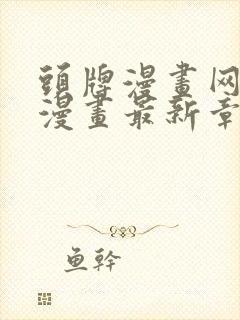 頭牌漫畫网
漫畫最新章
鱼幹